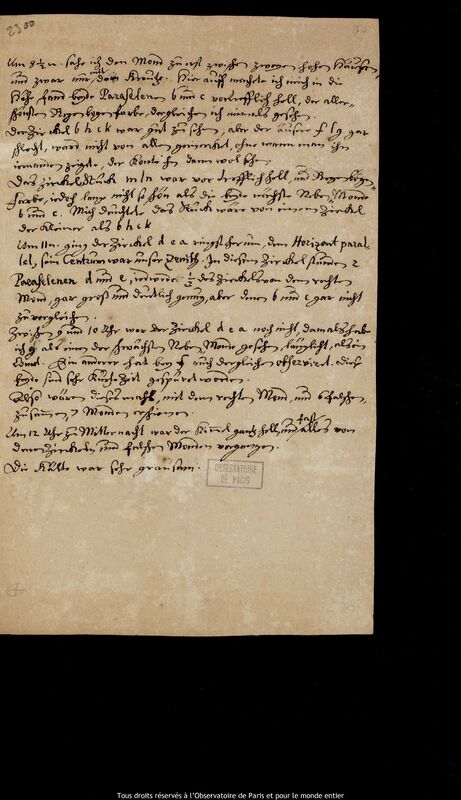 2300
30
Um 8½ u. sahe ich den Mond zu erst zwischen zweyen hohen Häusern,
und zwar nur mit dem Kreutze. Hierauff machte ich mich in die
Höhe fand beyde Paraselenen b und c vortrefflich hell, der aller-
schönsten Regenbogenfarbe, dergleichen ich niemals gesehen.
der Zirckel b h c k war gut zu sehen, aber der äuser f l g gar
schlecht, ward nicht von allen gemercket, ohne wann man ihn
iemanen zeigte, der konte ihn dann wol sehen.
Das zirckelstück m l n war vortrefflich hell, und Regenbogen-
farbe, iedoch lange nicht so schön als die beyde nächste Neben-Monde
b und c. Mich deuchte das Stück wäre von einem Zirckel
der kleiner als b h c k
Um 11 u. ging der Zirckel d e a rings herum, dem Horizont paral-
lel, sein Centrum war unser Zenith. In diesem Zirckel stunden 2
Paraselenen d und e, des Zirckels von dem rechten
Mond, gar gros und deutlich genung, aber denen b und c gar nicht
zu vergleichen.
Zwischen 9 und 10 Uhr war der Zirckel d e a noch nicht, damals sah
ich g als einen der schwächsten Neben Monde gesehen, länglicht, als ein
Ein anderer hat bey f auch dergleichen observirt. diese
beyde sind sehr kurtze Zeit gespüret worden.
Also wären diese nacht, mit dem rechten Mond, und 6 falschen,
zusammen, 7 Monden erschienen.
Um 12 Uhr zu Mitternacht war der Himmel gantz hell, und fast alles von
denen Zirckeln und falschen Monden vergangen.
Die Kälte war sehr grausam.
OBSERVATOIRE
DE PARIS
Tous droits réservés à l'Observatoire de Paris et pour le monde entier